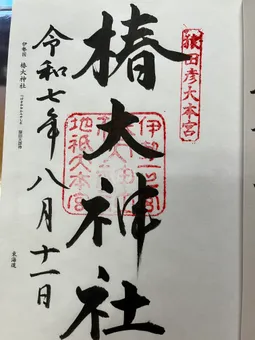 猿田彦大本宮
椿大神社
伊勢一宮
地祇大本宮
令和七年八月十一日
伊勢国 椿大神社
東海道